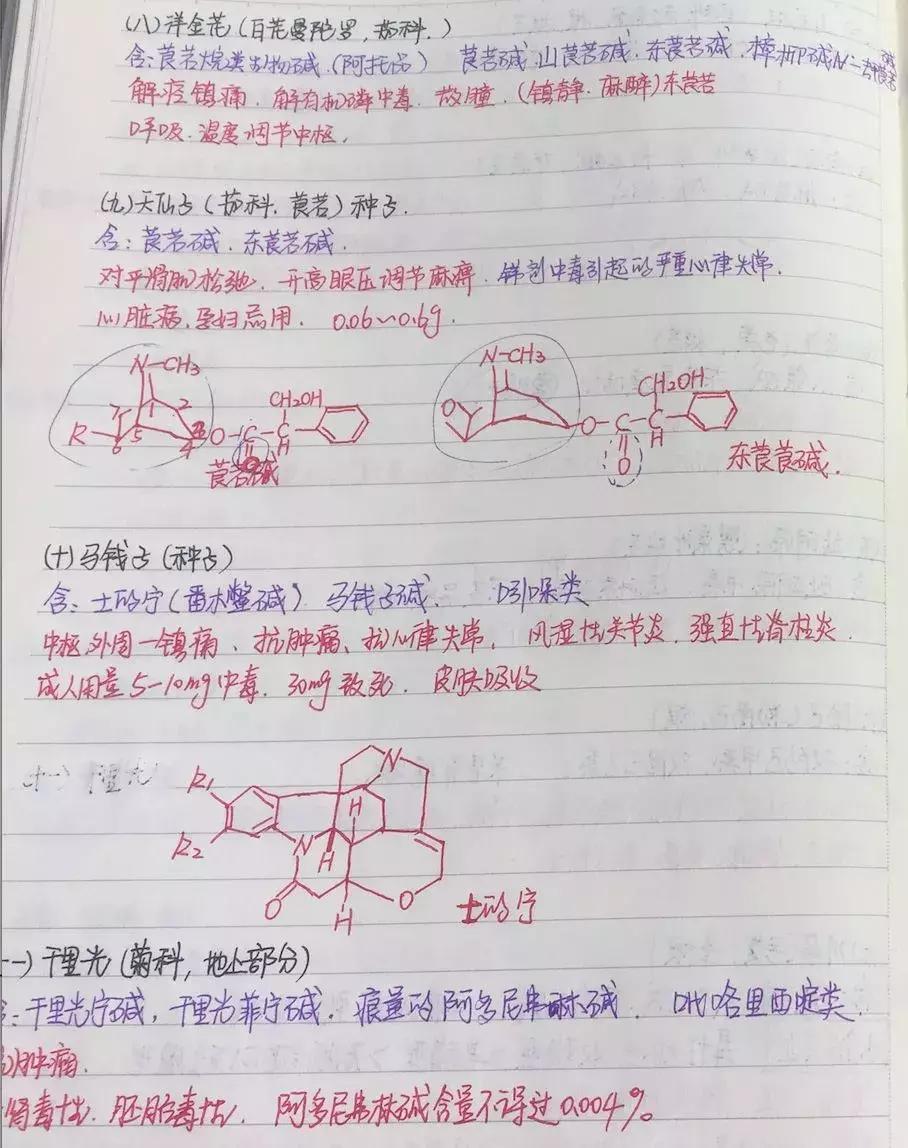 (八)洋金花(白花曼陀罗,茄科.)
含:莨菪烷类生物碱.(阿托品) 莨菪碱.山莨菪碱.东莨菪碱.樟柳碱N-去甲莨菪碱
解痉镇痛.解有机磷中毒.散瞳.(镇静.麻醉)东莨菪
呼吸.温度调节中枢.
(九)天仙子(茄科.莨菪)种子.
含:莨菪碱.东莨菪碱.
对平滑肌松弛.升高眼压调节麻痹.锑剂中毒引起的严重心律失常.
心脏病.孕妇忌用. 0.06~0.6g.
N-CH3 7 1 2 R 6 5 4 3 O-C-C CH2OH H O
莨菪碱
N-CH3 O O-C-C CH2OH H O
东莨菪碱.
(十)马钱子(种子)
含:士的宁(番木鳖碱) 马钱子碱. 吲哚类
中枢外周一镇痛、抗肿痛、抗心律失常. 风湿性关节炎.强直性脊柱炎.
成人用量5-10mg中毒.30mg致死.皮肤吸收
十一)千里光
R1 R2 N N H H H O O
士的宁
一)千里光(菊科,地上部分)
:千里光宁碱,千里光菲宁碱.痕量的阿多尼弗林碱. 吡咯里西啶类.
肿瘤.
肾毒性.胚胎毒性. 阿多尼弗林碱含量不得过0.004%.